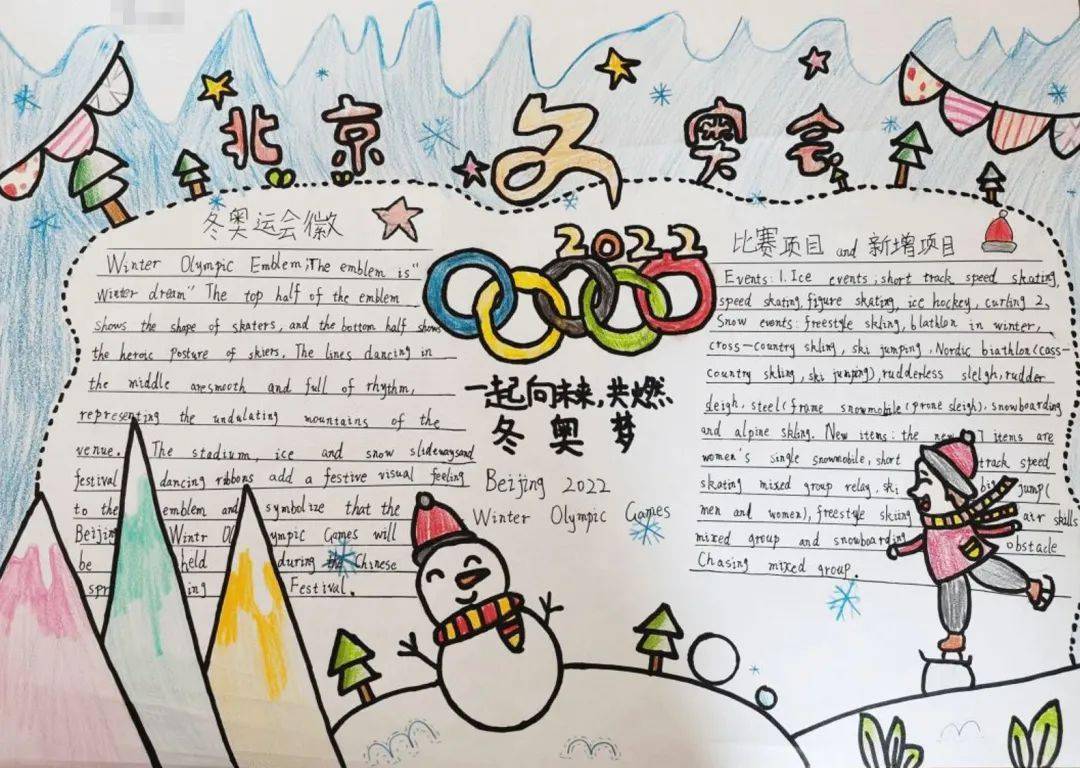 北京冬奥会
冬奥运会徽
Winter Olympic Emblem;The emblem is"
winter dream" The top half of the emblem
shows the shape of skaters, and the bottom half shows
the heroic posture of skiers. The lines dancing in
the middle aresmooth and full of rhythm,
representing the undulating mountains of the
venue. The stadium, ice and snow slidewaysand
festival dancing ribbons add a festive visual feeling
to the emblem and symbolize that the
Beijing Wintr Olympic Games will
be held during the Chinese
spring Festival.
2022
一起向未来,共燃
冬奥梦
Beijing 2022
Winter Olympic Games
比赛项目 and 新增项目
Events: 1. Ice events; short track speed skating,
speed skating, figure skating, ice hockey, curling 2,
Snow events: freestyle skling, blathlon in winter,
cross-country skling, ski jumping, Nordic biathlon(coss-
country skling, ski jumping), rudderless sleigh, rudder
sleigh, steel(frame snowmobile(prone sleigh), snowboarding
and alpine skling. New items: the new 7 items are
women's single snowmobile, short track speed
skating mixed group relay, ski jump(
men and women), freestyle skiing air skills
mixed group and snowboarding obstacle
Chasing mixed group.